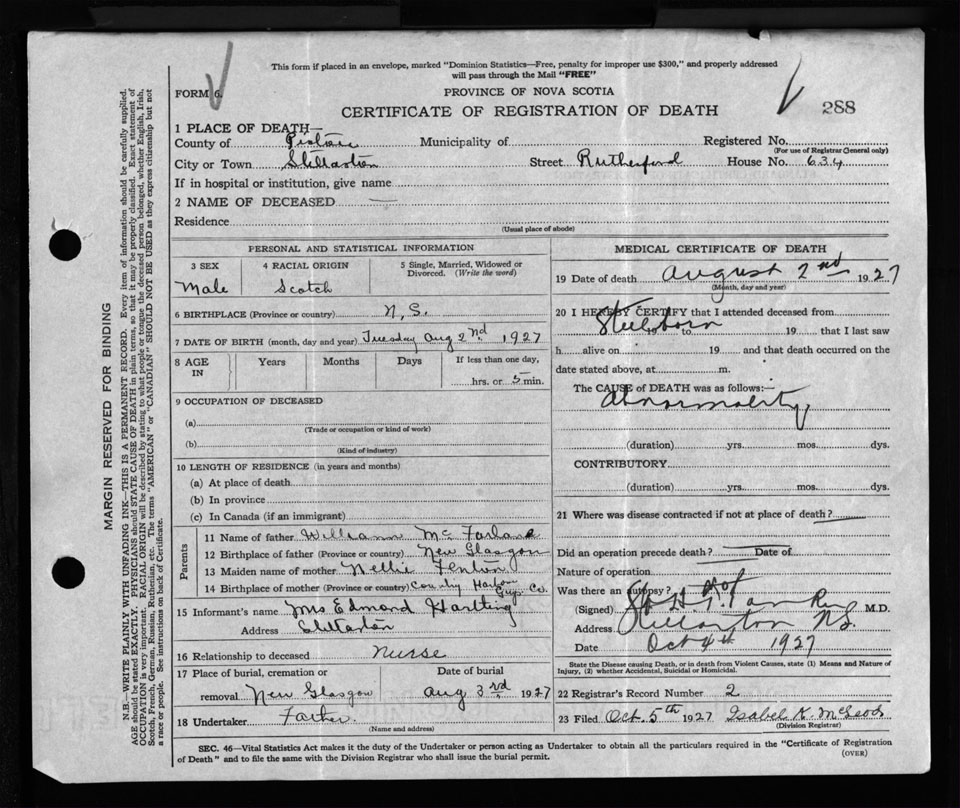 This form if placed in an envelope, marked "Dominion Statistics—Free, penalty for improper use $300," and properly addressed
will pass through the Mail "FREE"
FORM 6.
PROVINCE OF NOVA SCOTIA
CERTIFICATE OF REGISTRATION OF DEATH
288
1 PLACE OF DEATH—
County of Pictou Municipality of Registered No.
(For use of Registrar General only)
City or Town Stellarton Street Rutherford House No. 634
If in hospital or institution, give name
2 NAME OF DECEASED
Residence
(Usual place of abode)
PERSONAL AND STATISTICAL INFORMATION
3 SEX 4 RACIAL ORIGIN 5 Single, Married, Widowed or Divorced. (Write the word)
Male Scotch
6 BIRTHPLACE (Province or country) N.S.
7 DATE OF BIRTH (month, day and year) Tuesday Aug 2nd 1927
8 AGE IN Years Months Days If less than one day,
hrs. or 5 min.
9 OCCUPATION OF DECEASED
(a)
(Trade or occupation or kind of work)
(b)
(Kind of industry)
10 LENGTH OF RESIDENCE (in years and months)
(a) At place of death
(b) In province
(c) In Canada (if an immigrant)
Parents
11 Name of father William McFarlane
12 Birthplace of father (Province or country) New Glasgow
13 Maiden name of mother Nellie Fenton
14 Birthplace of mother (Province or country) Country Harbour Guy. Co.
15 Informant's name Mrs Edmond Hartling
Address Stellarton
16 Relationship to deceased Nurse
17 Place of burial, cremation or Date of burial
removal New Glasgow Aug 3rd 1927
18 Undertaker Father.
(Name and address)
MEDICAL CERTIFICATE OF DEATH
19 Date of death August 2nd 1927
(Month, day and year)
20 I HEREBY CERTIFY that I attended deceased from
Stillborn 19 to 19 that I last saw
h alive on 19 and that death occurred on the
date stated above, at m.
The CAUSE of DEATH was as follows:—
Abnormality
(duration) yrs. mos. dys.
CONTRIBUTORY
(duration) yrs. mos. dys.
21 Where was disease contracted if not at place of death?
Did an operation precede death? Date of
Nature of operation
Was there an autopsy?
(Signed) M.D.
Address Stellarton N.S.
Date Oct 4th 1927
State the Disease causing Death, or in death from Violent Causes, state (1) Means and Nature of
Injury, (2) whether Accidental, Suicidal or Homicidal.
22 Registrar's Record Number 2
23 Filed Oct. 5th 1927 Isabel K. McLeod
(Division Registrar)
SEC. 46—Vital Statistics Act makes it the duty of the Undertaker or person acting as Undertaker to obtain all the particulars required in the "Certificate of Registration
of Death" and to file the same with the Division Registrar who shall issue the burial permit.
(OVER)
MARGIN RESERVED FOR BINDING
N.B.—WRITE PLAINLY WITH UNFADING INK—THIS IS A PERMANENT RECORD. Every item of information should be carefully supplied.
AGE should be stated EXACTLY. PHYSICIANS should STATE CAUSE OF DEATH in plain terms, so that it may be properly classified. Exact statement of
OCCUPATION is very important. RACIAL ORIGIN will be described by stating to what people or tongue the deceased person belonged, whether English, Irish,
Scotch, French, German, Russian, Ruthenian, etc. The terms "AMERICAN" or "CANADIAN" SHOULD NOT BE USED as they express citizenship but not
a race or people. See instructions on back of Certificate.